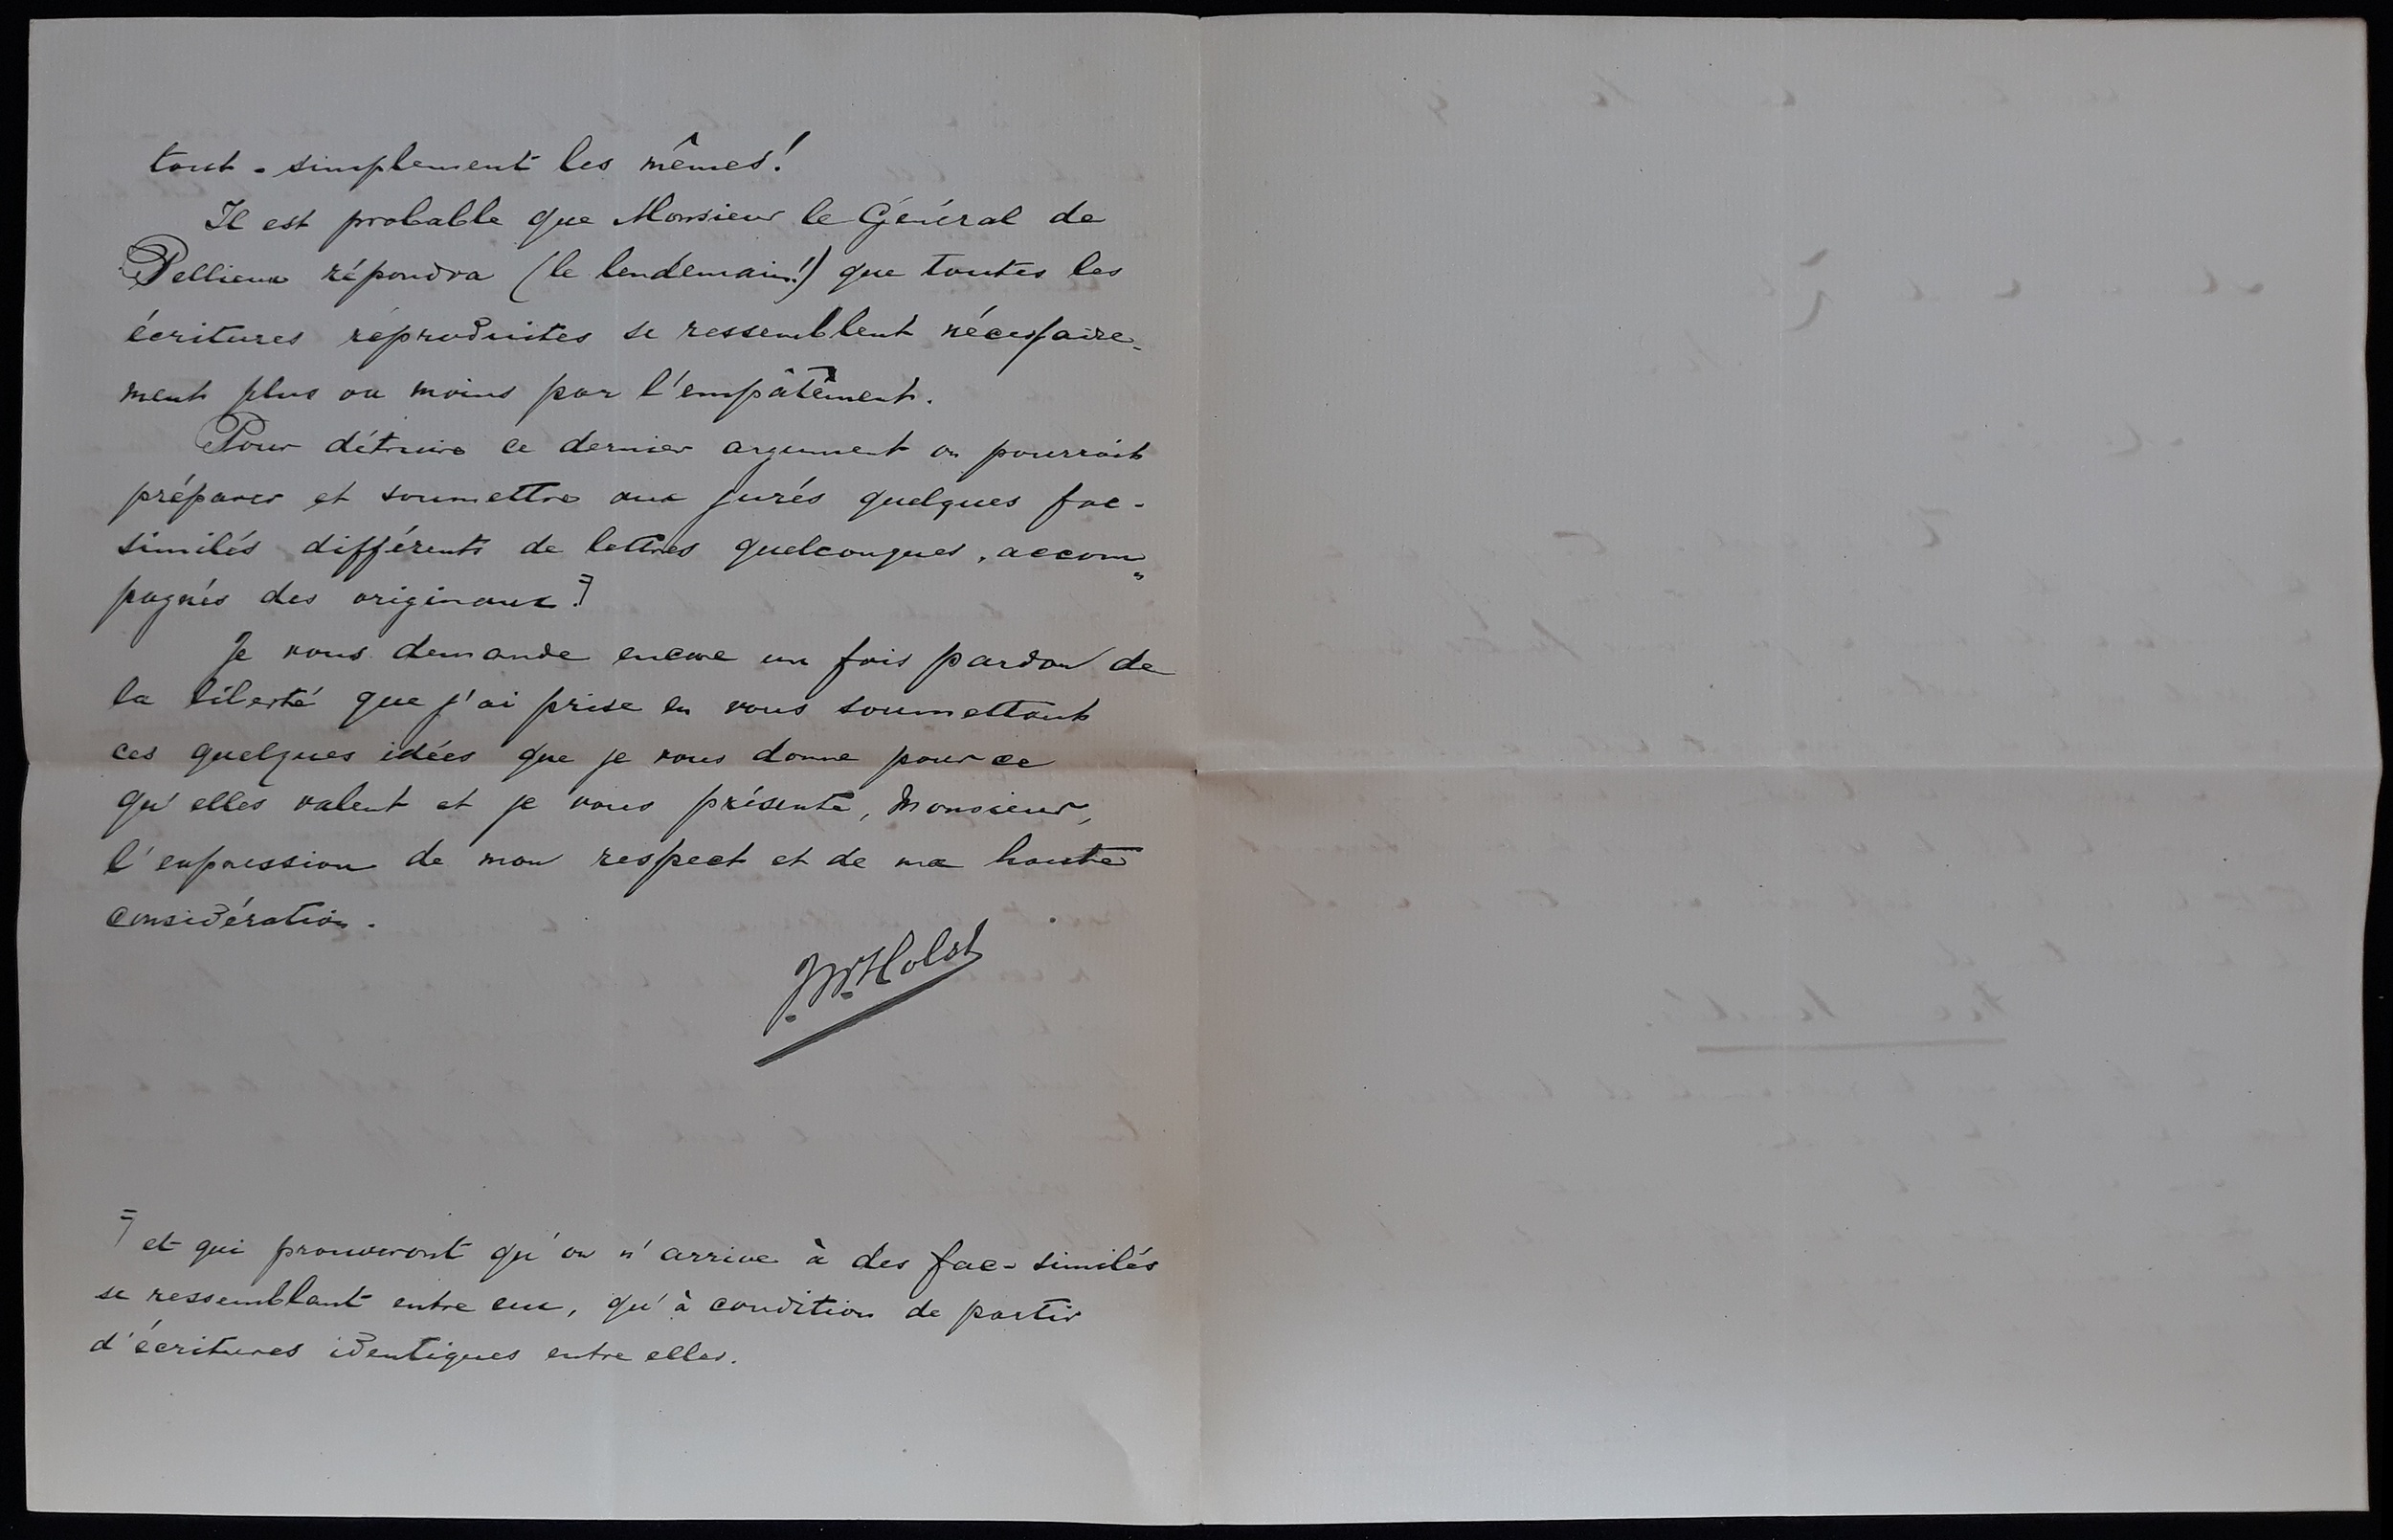 tout-simplement les mêmes!
Il est probable que Monsieur le Général de
Pellieux répondra (le lendemain!) que toutes les
écritures réproduites se ressemblent nécessaire-
ment plus ou moins par l'empâtêment.
Pour détruire ce dernier argument on pourrait
préparer et soumettre aux jurés quelques fac-
similés différents de lettres quelconques, accom„
pagnés des originaux.⁊
Je vous demande encore un fois pardon de
la liberté que j'ai prise en vous soumettant
ces quelques idées que je vous donne pour ce
qu'elles valent et je vous présente, Monsieur,
l'expression de mon respect et de ma haute
considération.
J.W. Holst
⁊ et qui prouveront qu'on n'arrive à des fac-similés
se ressemblant entre eux, qu'à condition de partir
d'écritures identiques entre elles.